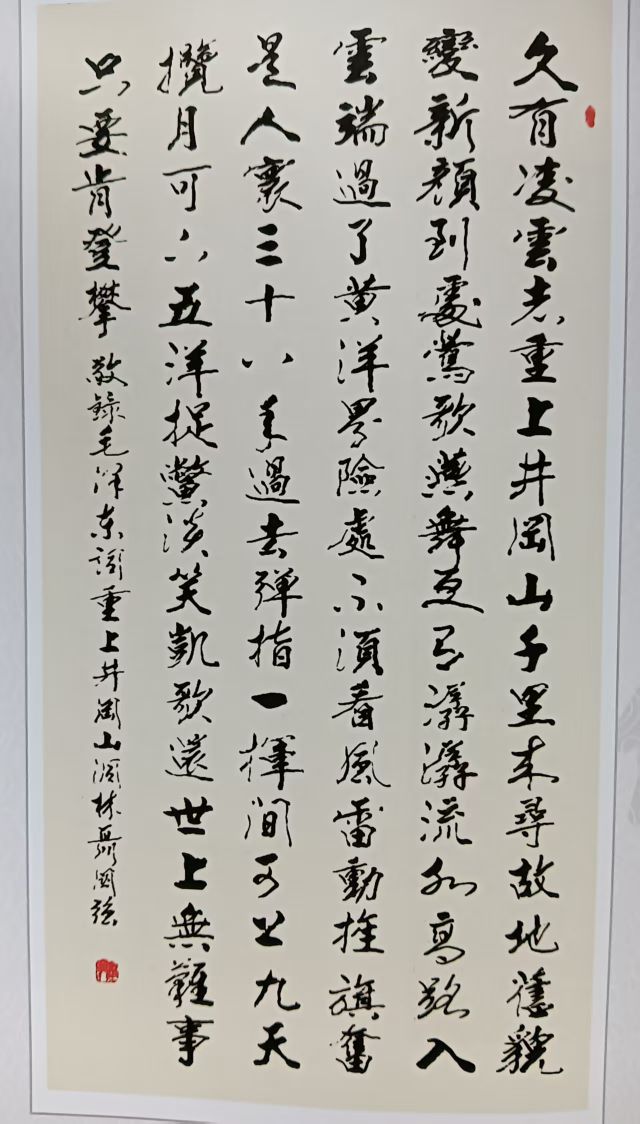 久有凌雲志重上井岡山千里来尋故地舊貌
變新顏到處鶯歌燕舞更有潺潺流水高路入
雲端過了黄洋界險處不須看風雷動旌旗奮
是人寰三十八年過去彈指一揮間可上九天
攬月可下五洋捉鱉談笑凱歌還世上無難事
只要肯登攀 敬錄毛澤東詞重上井岡山